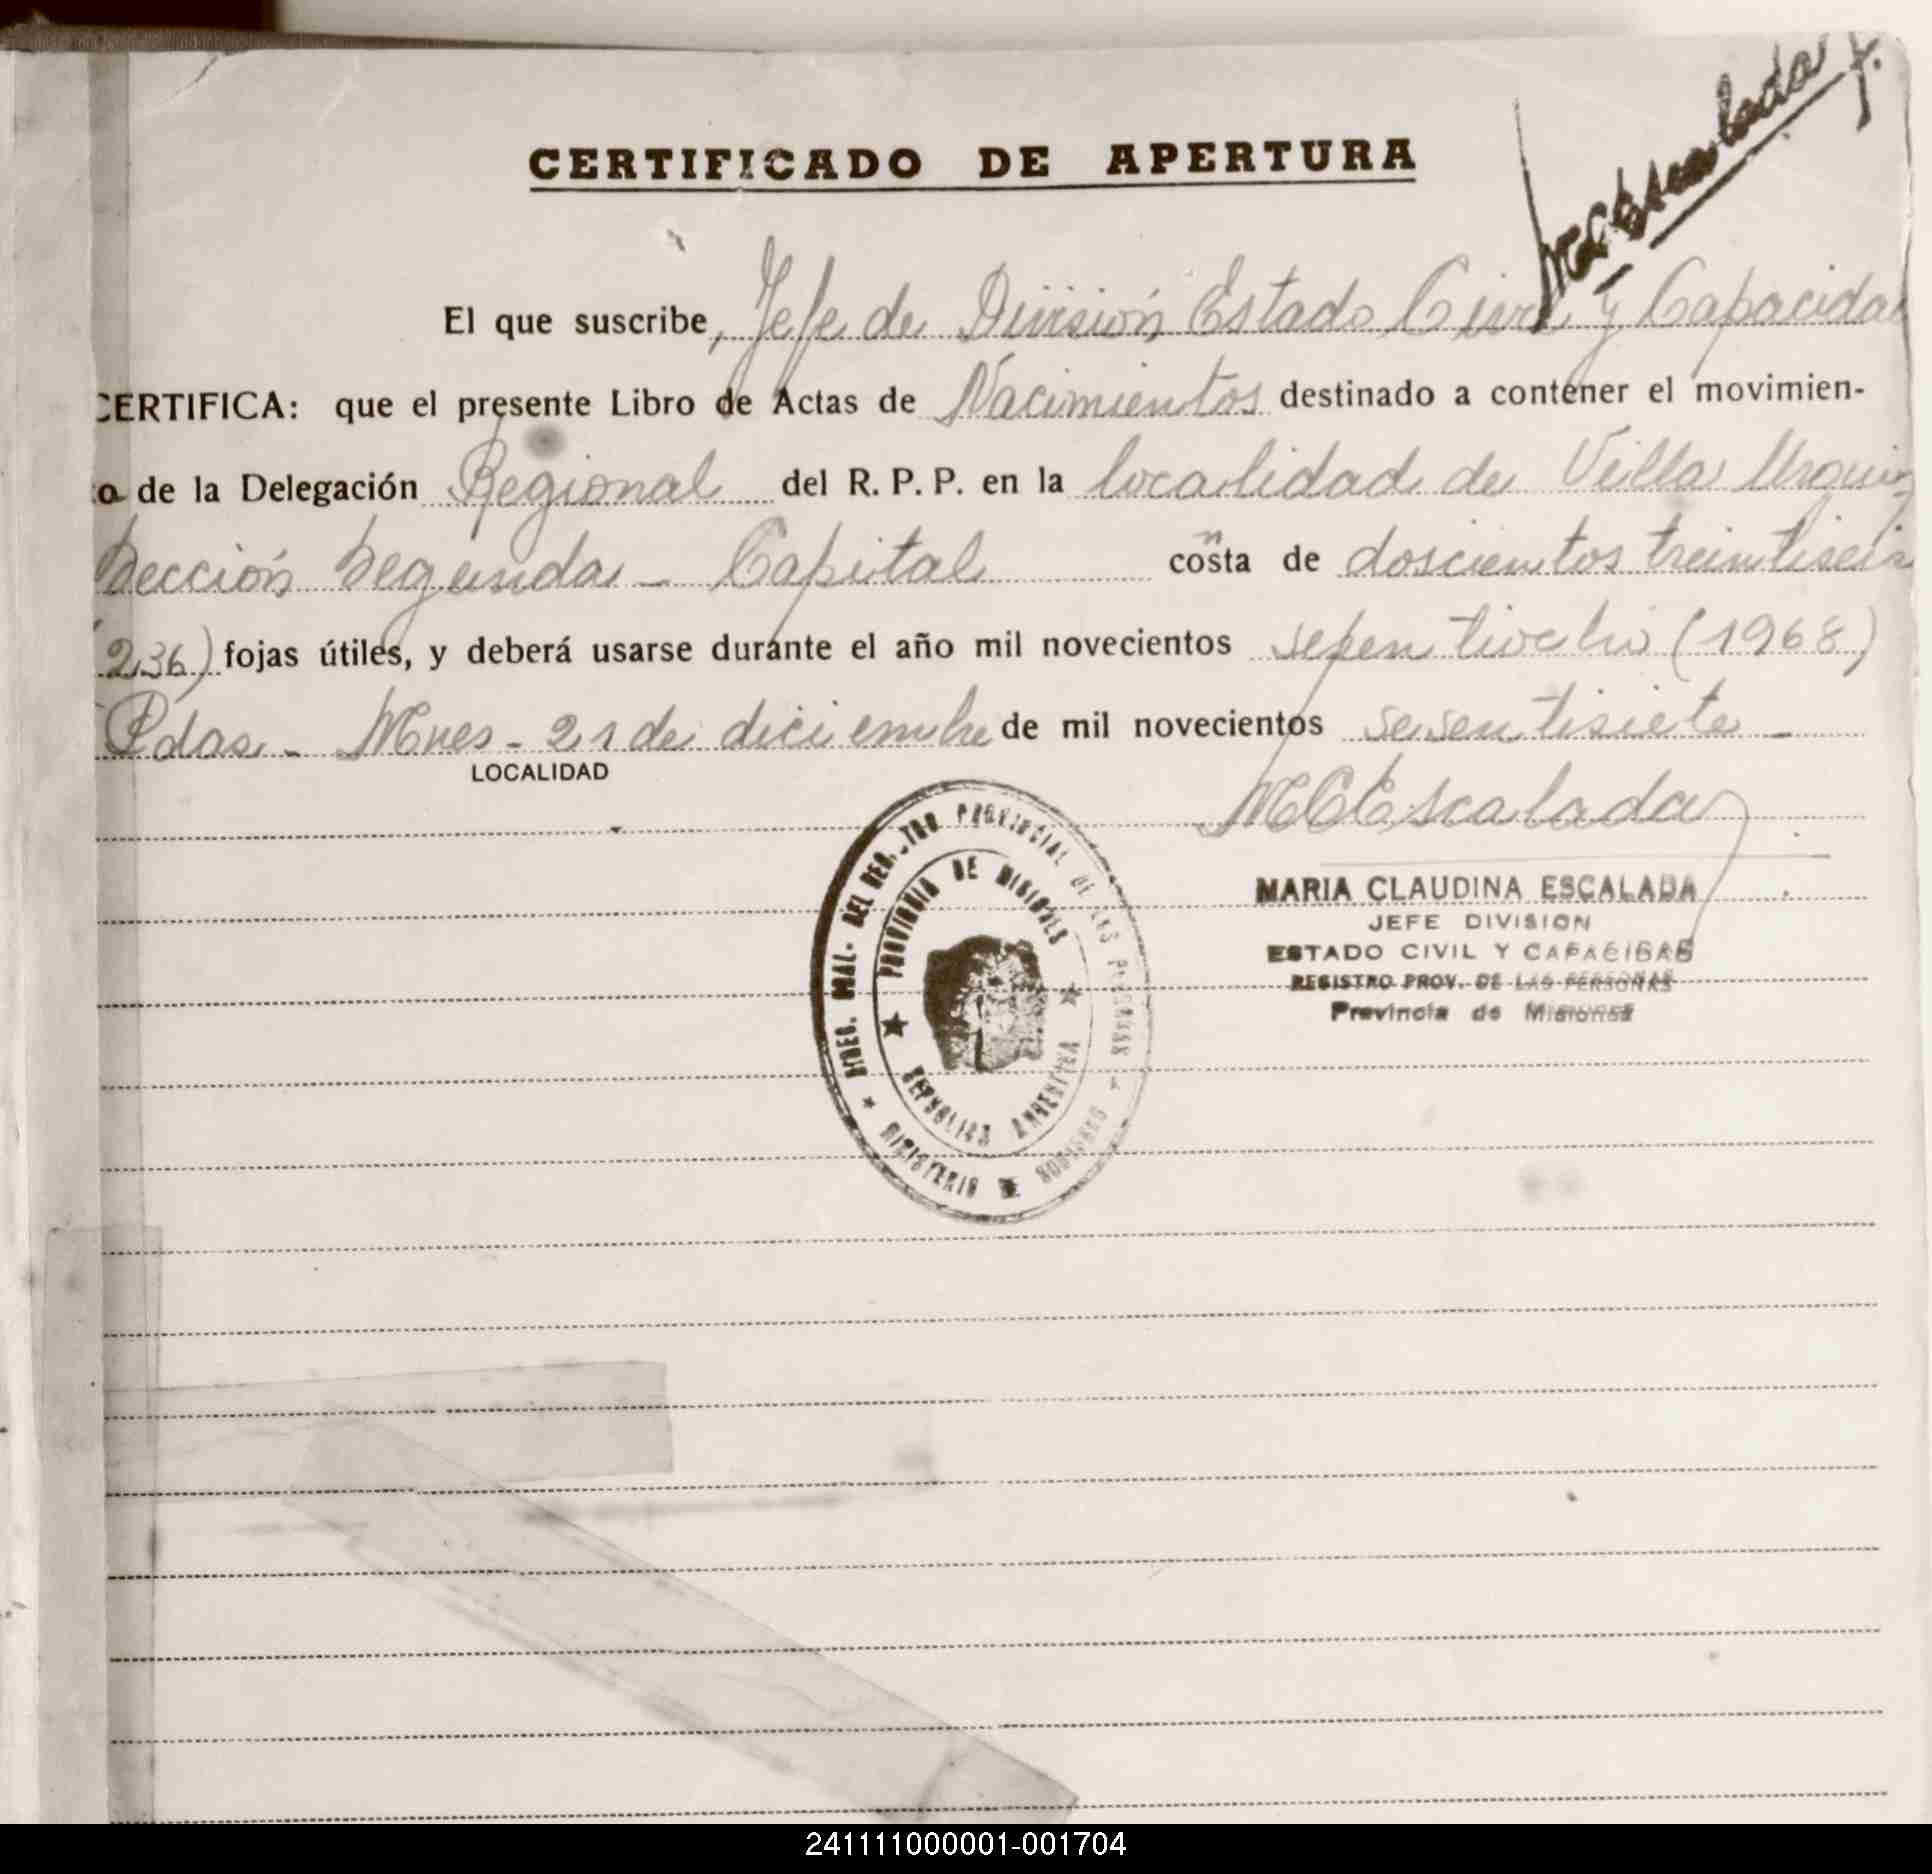 MCEscalada
CERTIFICADO DE APERTURA
El que suscribe, Jefe de División Estado Civil y Capacidad
CERTIFICA: que el presente Libro de Actas de Nacimientos destinado a contener el movimien-
o de la Delegación Regional del R. P. P. en la localidad de Villa Urquiz
Sección Segunda - Capital consta de doscientos treintiseis
(236) fojas útiles, y deberá usarse durante el año mil novecientos (1968)
Pdas - Mnes - 21 de diciembre de mil novecientos sesentisiete -
LOCALIDAD
MCEscalada
MARIA CLAUDINA ESCALADA
JEFE DIVISION
ESTADO CIVIL Y CAPACIDAD
REGISTRO PROV. DE LAS PERSONAS
Provincia de Misiones
DIREC. GRAL. DEL REGISTRO PROVINCIAL DE LAS PERSONAS
PROVINCIA DE MISIONES
REPUBLICA ARGENTINA
MINISTERIO DE GOBIERNO
241111000001-001704